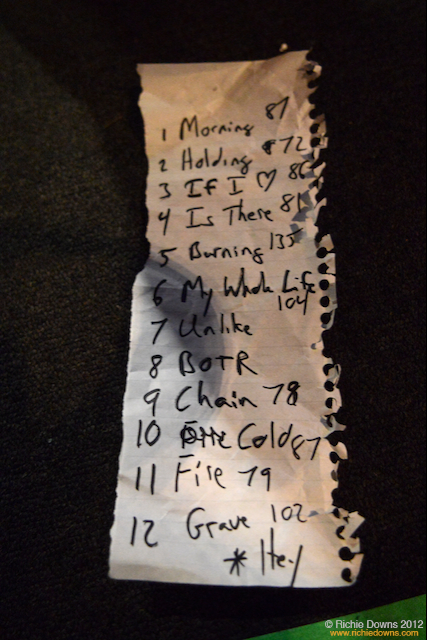 1 Morning 87
2 Holding 72
3 If I ♡ 86
4 Is There 81
5 Burning 135
6 My Whole Life
104
7 Unlike
8 BOTR
9 Chain 78
10 Cold 87
11 Fire 79
12 Grave 102
* Hey
© Richie Downs 2012
www.richiedowns.com